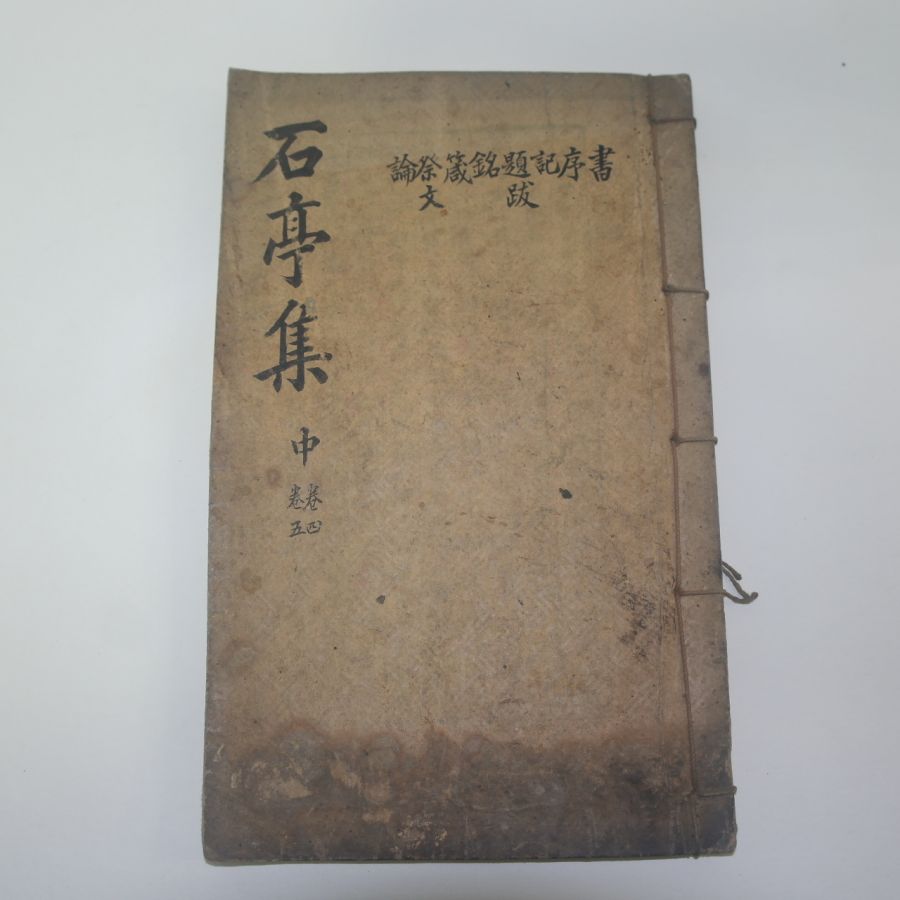 石亭集
中
卷四
卷五
書序記題跋銘箴祭文論